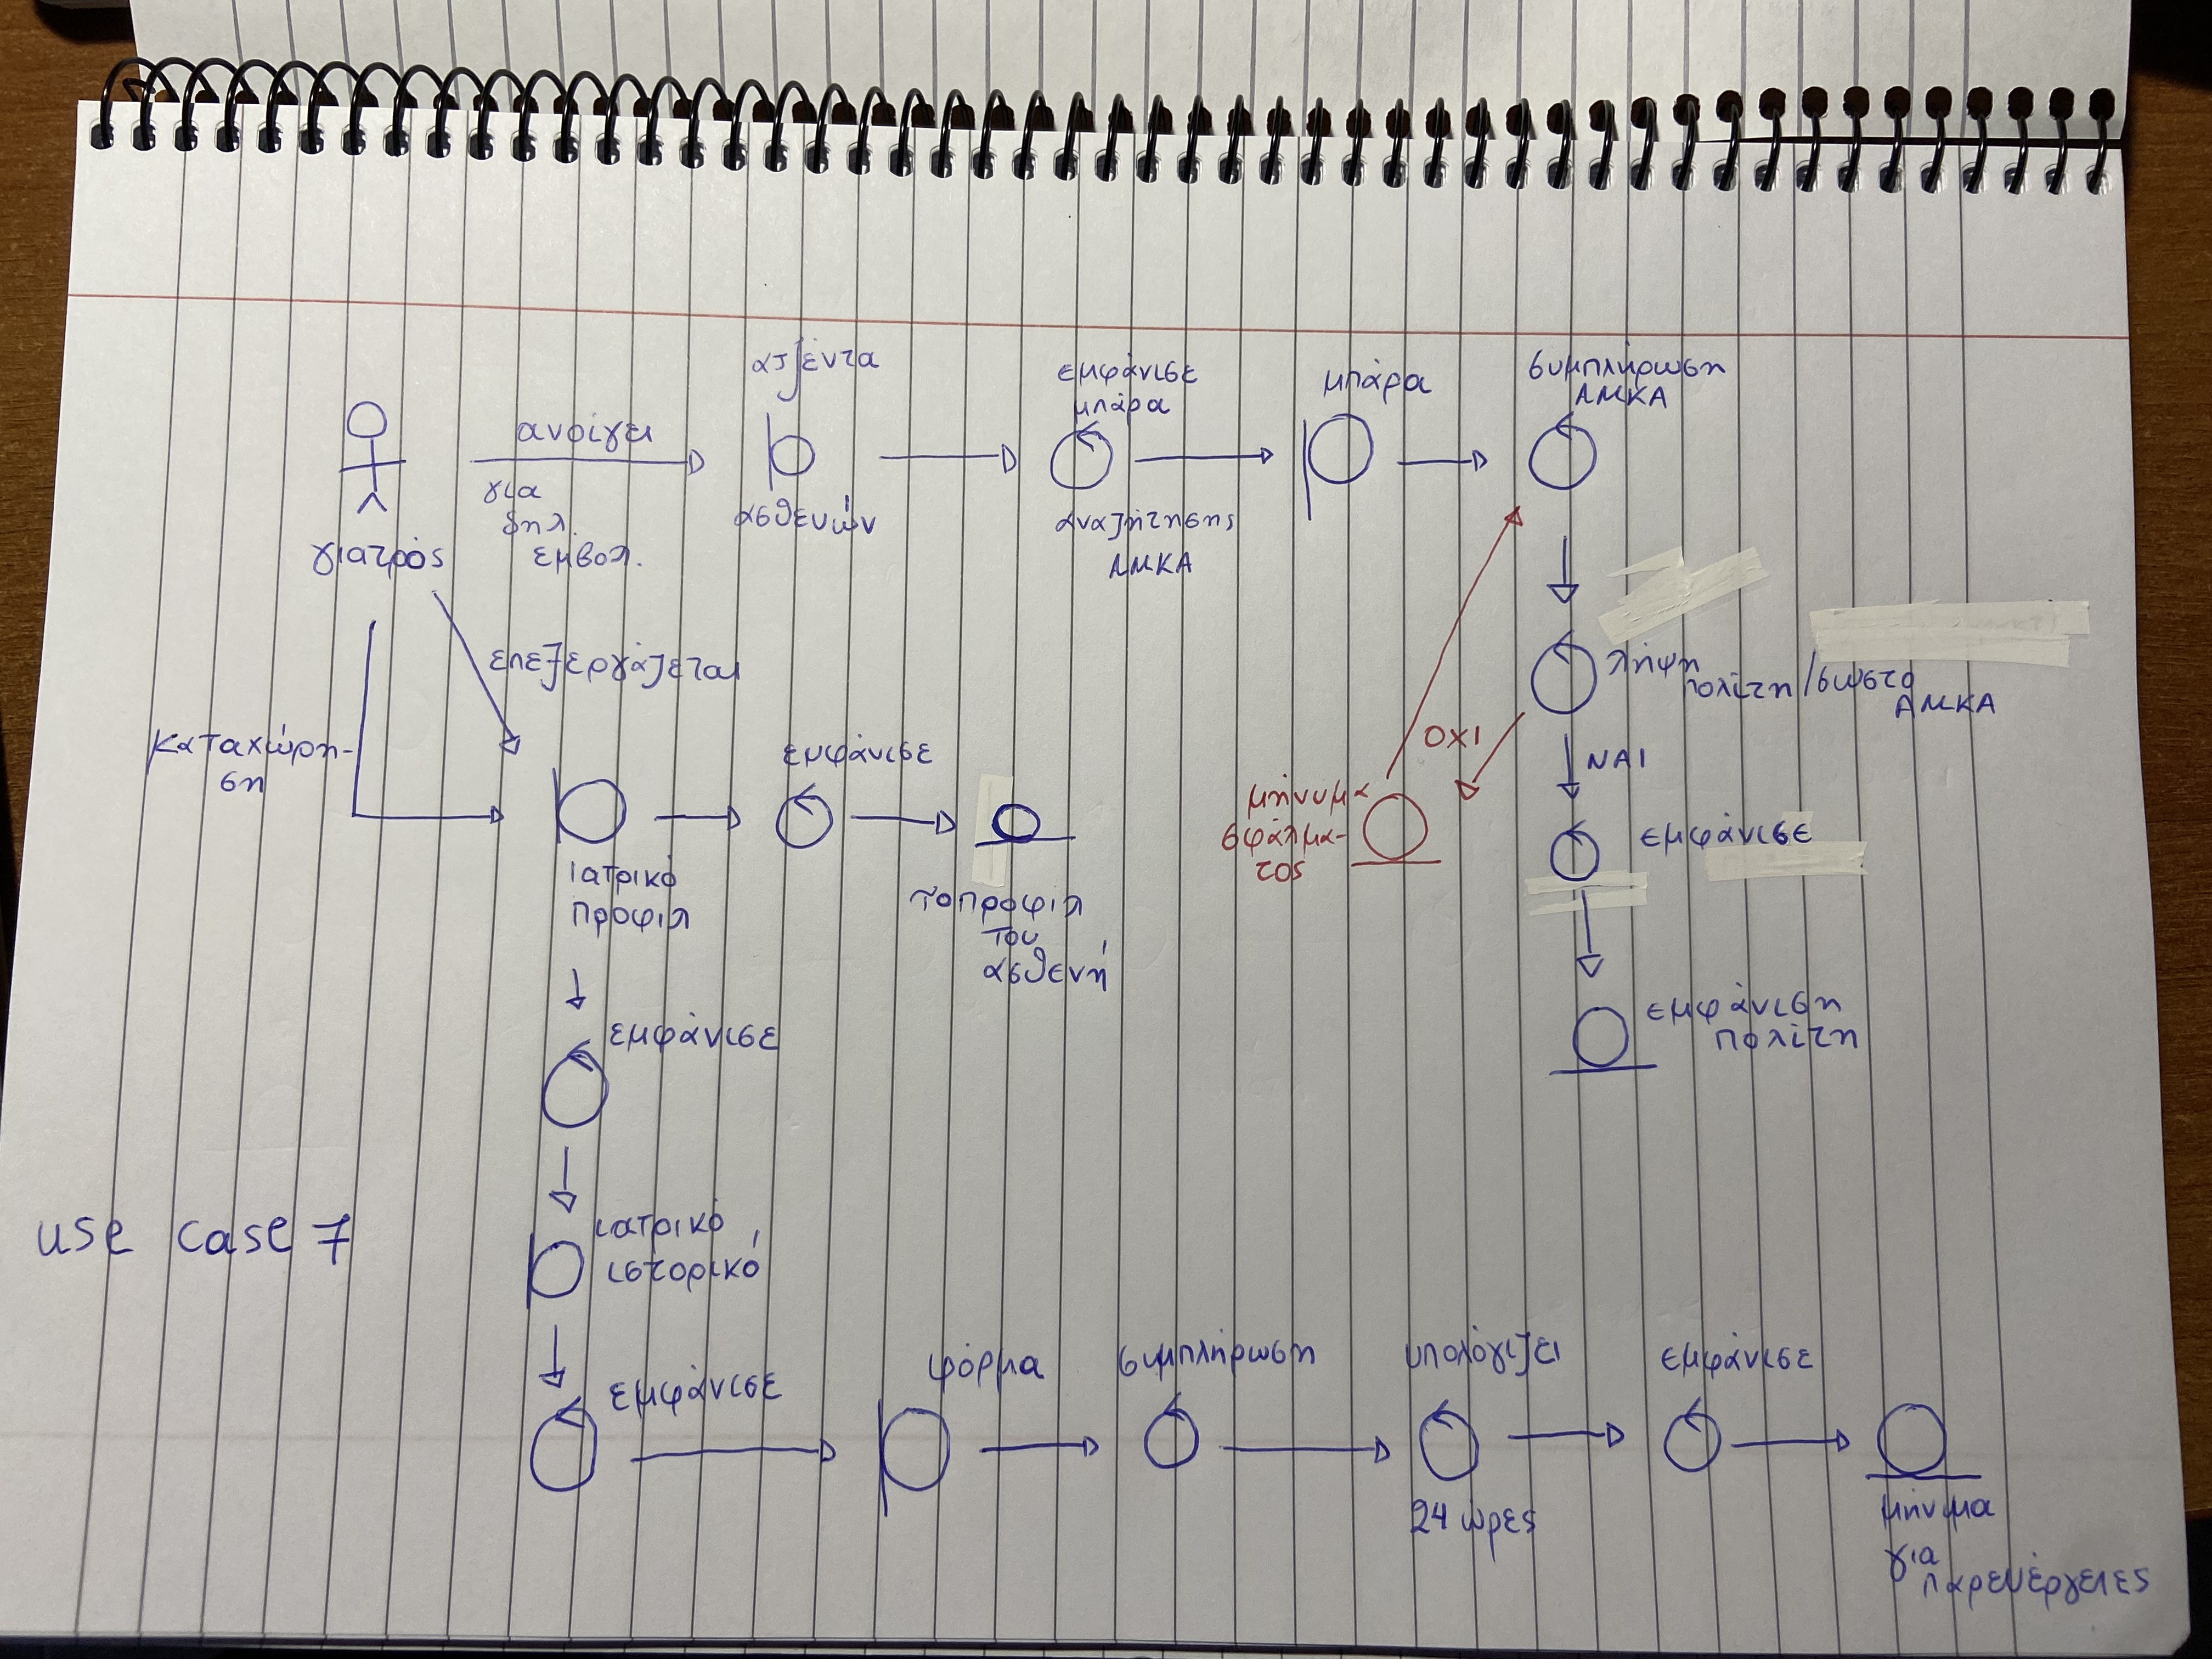 γιατρός
ανοίγει
για
δηλ
εμβολ.
ατζέντα
ασθενών
εμφάνισε
μπάρα
αναζήτησης
ΑΜΚΑ
μπάρα
συμπλήρωση
ΑΜΚΑ
λήψη πολίτη/σωστο
ΑΜΚΑ
ΟΧΙ
μήνυμα
σφάλμα-
τος
ΝΑΙ
εμφάνισε
εμφάνιση
πολίτη
Καταχώρη-
ση
επεξεργάζεται
ιατρικό
προφιλ
εμφάνισε
το προφιλ
του
ασθενή
εμφάνισε
ιατρικό
ιστορικό
εμφάνισε
φόρμα
συμπλήρωση
υπολόγιζει
24 ώρες
εμφάνισε
μήνυμα
για
παρενέργειες
use case 7